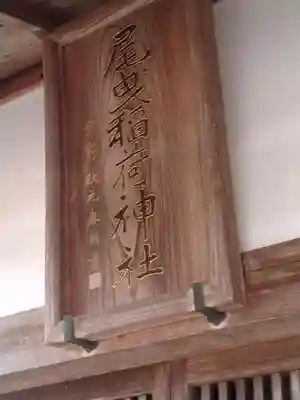 尾曳稲荷神社